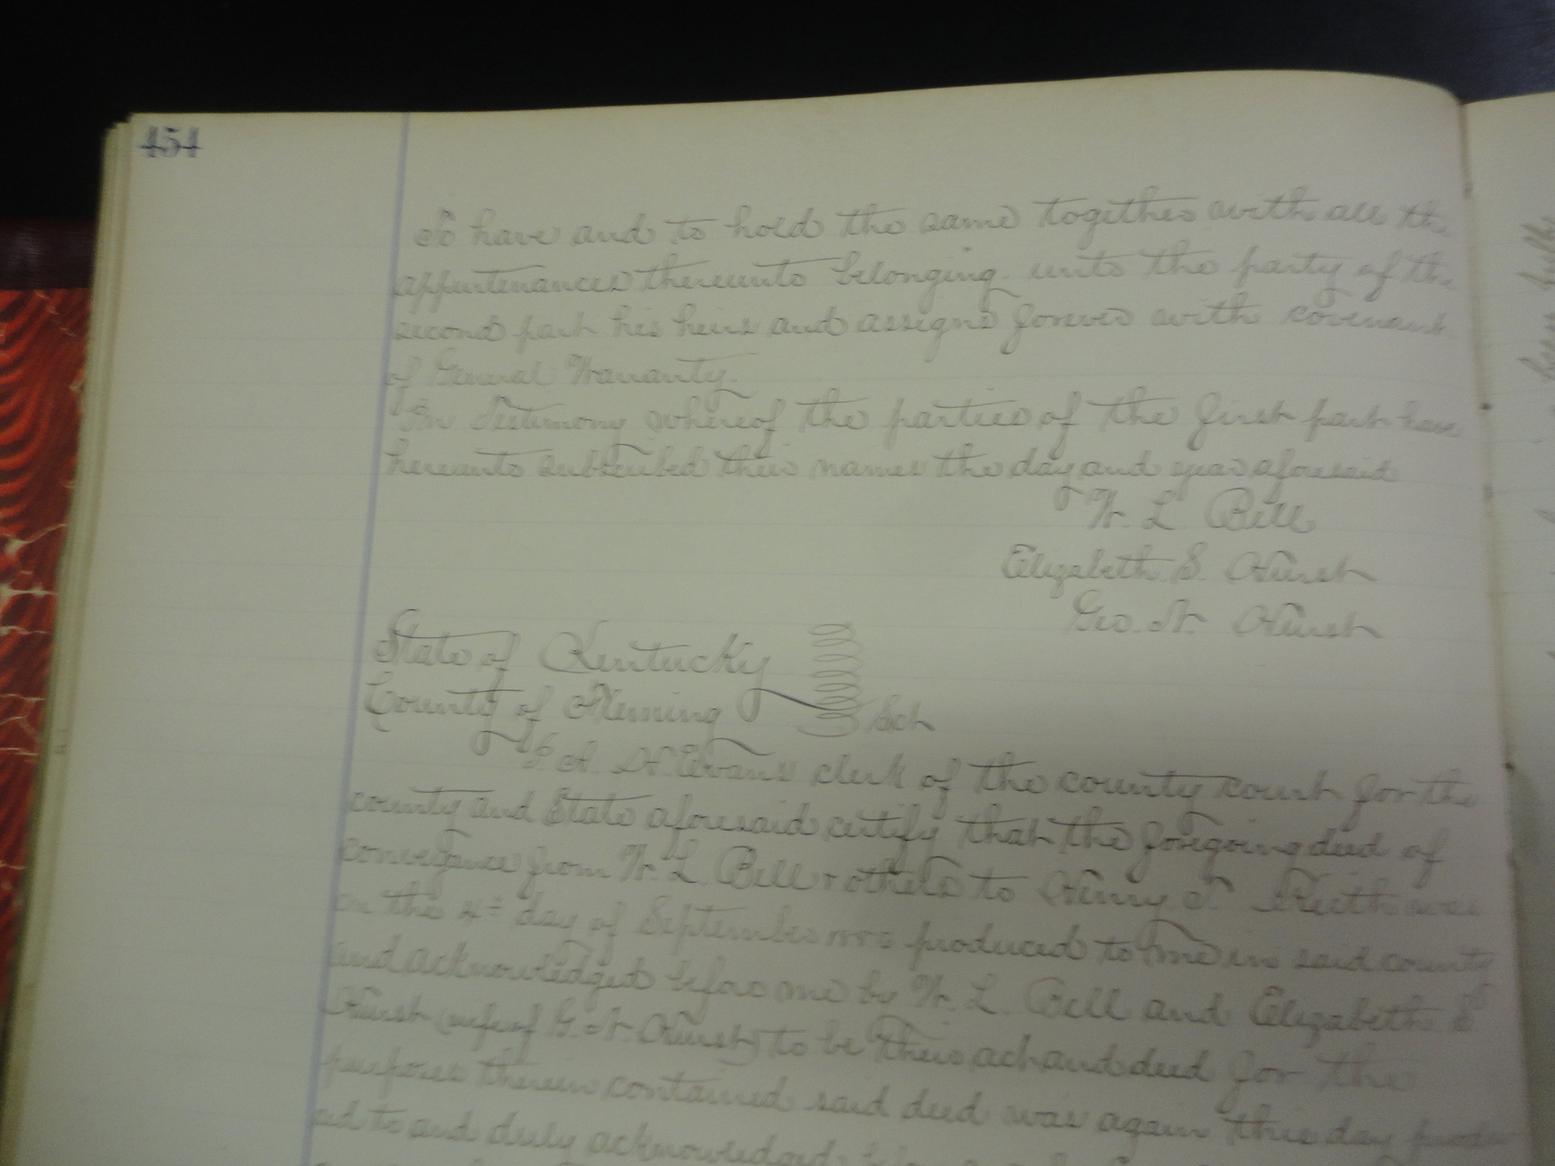 454
To have and to hold the same together with all th
appurtenances thereunto belonging unto the party of th
second part his heirs and assigns forever with covenant
of General Warranty.
In Testimony whereof the parties of the first part have
hereunto subscribed their names the day and year aforesaid
W. L. Bell
Elizabeth S. Hurst
Geo. W. Hurst
State of Kentucky
County of Fleming Sct
I A. D. Evans clerk of the county court for the
county and State aforesaid certify that the foregoing deed of
conveyance from W. L. Bell & others to Henry was
on the 4th day of September produced to me in said county
and acknowledged before me by W. L. Bell and Elizabeth S
Hurst (wife of G. W. Hurst) to be their act and deed for the
purposes therein contained said deed was again this day produc
ed to and duly acknowledged